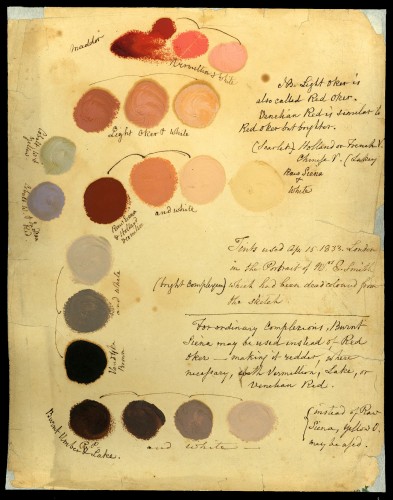 Madder
Vermilion & White
N.B. Light Oker is
also called Red Oker.
Venetian Red is similar to
Red oker but brighter.
Light Oker & White
(Scarlet) Holland or French V.
Chinese V. (
Raw Siena
&
White
and white
Tints used Apr. 15 1833 London
in the Portrait of Mrs E. Smith
(bright complexion) which had been deadcoloured from
the sketch
and White
For ordinary Complexions, Burnt
Siena may be used instead of Red
Oker — making it redder, where
necessary, with Vermillion, Lake, or
Venetian Red.
Brown
Burnt Umber & Lake.
and white
(instead of Raw
Siena, Yellow O.
may be used.